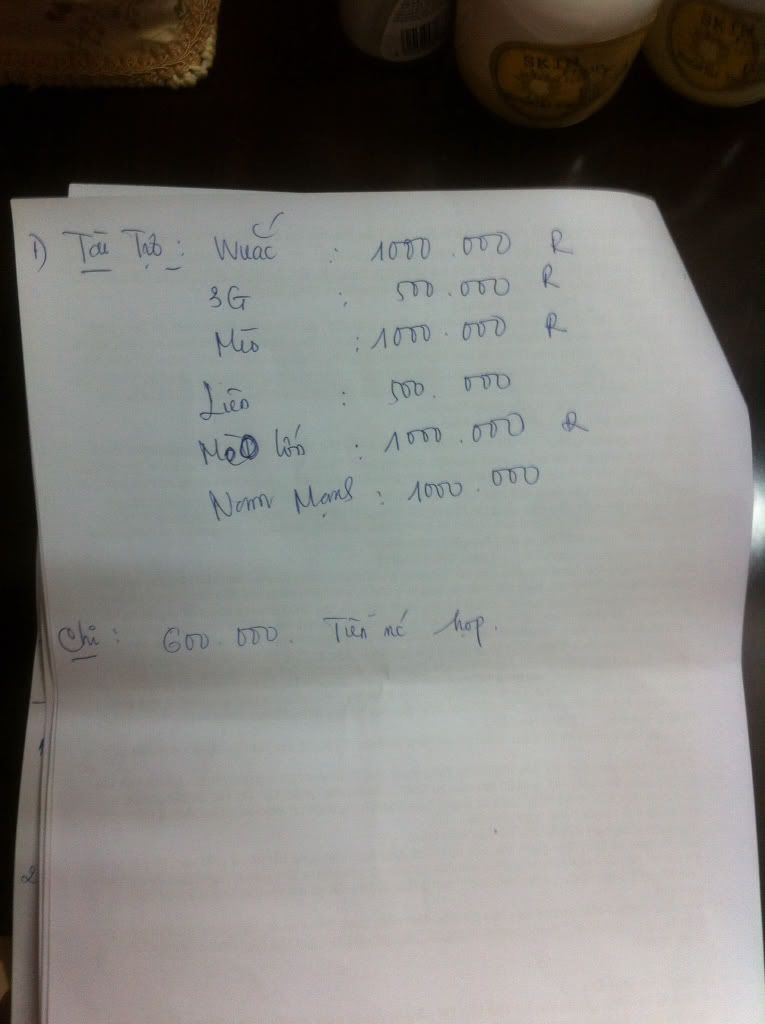 SKIN
SKIN
1) Tài Trợ : Wuắc : 1000.000 R
3G : 500.000 R
Mèo : 1000.000 R
Liên : 500.000
Mèo lớn : 1000.000 R
Nam Mạnh : 1000.000
Chi : 600.000. Tiền nc' họp.
2